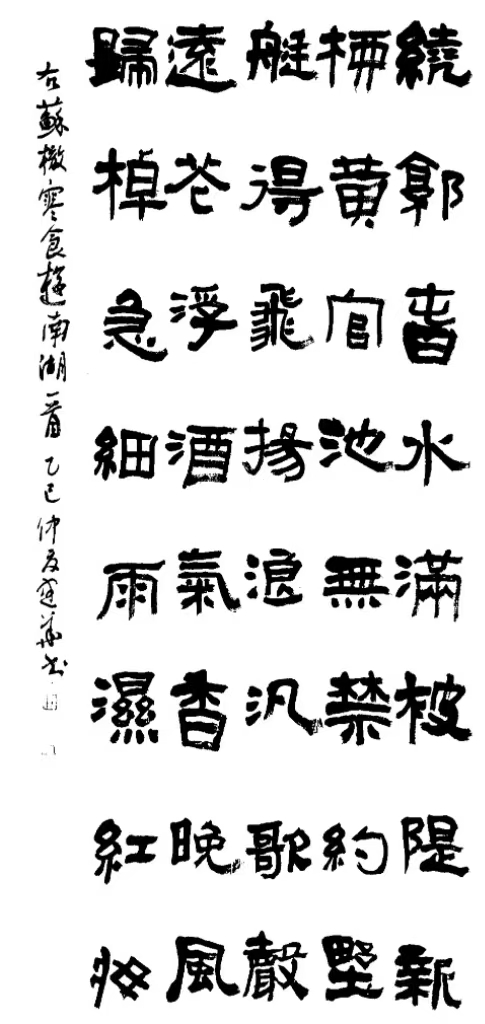 繞郭春水滿被隄新
柳黃官池無禁約野
艇得飛揚浪汎歌聲
遠花浮酒氣香晚風
歸棹急細雨濕紅妝
右蘇轍寒食遊南湖一首 乙巳仲夏建華書